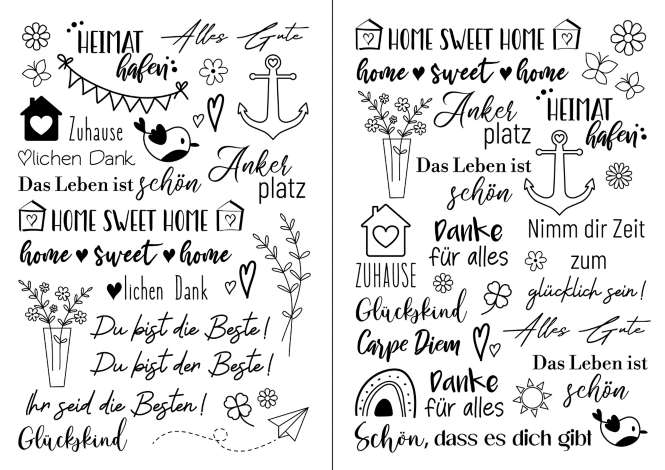 HEIMAT
hafen
Alles Gute
Zuhause
lichen Dank
Das Leben ist schön
Anker
platz
HOME SWEET HOME
home sweet home
lichen Dank
Du bist die Beste!
Du bist der Beste!
Ihr seid die Besten!
Glückskind
HOME SWEET HOME
home sweet home
Anker
platz
HEIMAT
hafen
Das Leben ist
schön
ZUHAUSE
Danke
für alles
Nimm dir Zeit
zum
glücklich sein!
Glückskind
Carpe Diem
Alles Gute
Das Leben ist
schön
Danke
für alles
Schön, dass es dich gibt